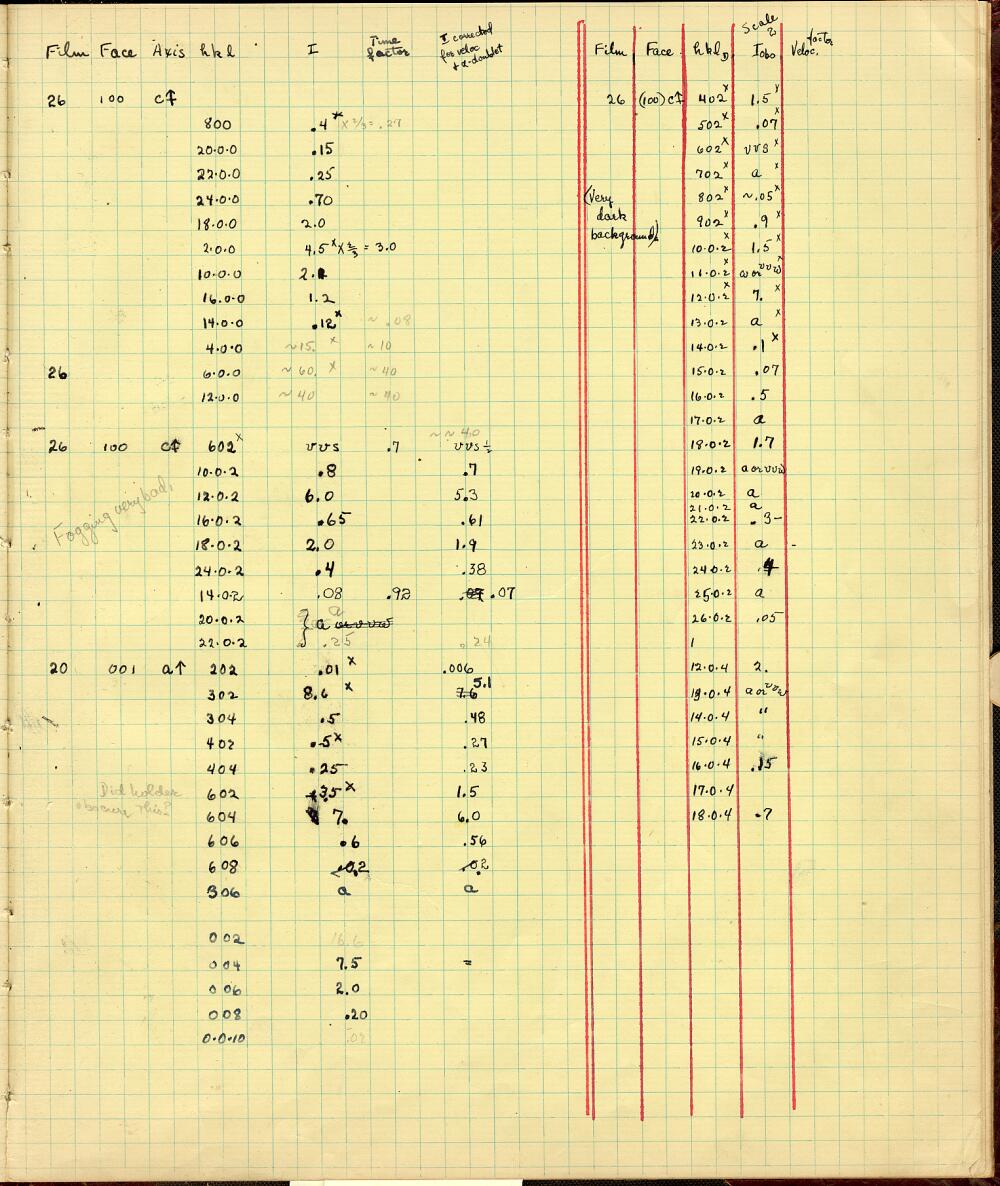 Film Face Axis hkl I Time factor I corrected for veloc + α-doublet
26 100 c↕
800 .4ˣ x 2/3 = .27
20·0·0 .15
22·0·0 .25
24·0·0 .70
18·0·0 2.0
2·0·0 4.5ˣ x 2/3 = 3.0
10·0·0 2.
16·0·0 1.2
14·0·0 .12ˣ ~ .08
4·0·0 ~15. ˣ ~10
26 6·0·0 ~60. ˣ ~40
12·0·0 ~40 ~40
~~40
26 100 c↕ 602ˣ vvs .7 vvs ½
10·0·2 .8 .7
12·0·2 6.0 5.3
16·0·2 .65 .61
18·0·2 2.0 1.9
24·0·2 .4 .38
14·0·2 .08 .92 .07
20·0·2 a or vvw
22·0·2 .25 .24
Fogging very bad.
20 001 a↑ 202 .01ˣ .006
302 8.6 ˣ 7.6 5.1
304 .5 .48
402 .5ˣ .27
404 .25 .23
602 3.5ˣ 1.5
604 7. 6.0
Did holder
obscure this?
606 .6 .56
608 <.02 .02
306 a a
002 16.6
004 7.5 =
006 2.0
008 .20
0·0·10 .02
Film Face hkl Scale 2 Iobs Veloc. factor
26 (100) c↕ 402ˣ 1.5ˣ
502ˣ .07ˣ
602ˣ vvsˣ
702ˣ aˣ
802ˣ ~.05ˣ
902ˣ .9ˣ
(Very
dark
background)
10·0·2ˣ 1.5ˣ
11·0·2ˣ a or vvwˣ
12·0·2ˣ 7.ˣ
13·0·2 aˣ
14·0·2 .1ˣ
15·0·2 .07
16·0·2 .5
17·0·2 a
18·0·2 1.7
19·0·2 a or vvw
20·0·2 a
21·0·2 a
22·0·2 .3-
23·0·2 a -
24·0·2 .4
25·0·2 a
26·0·2 .05
12·0·4 2.
13·0·4 a or vvw
14·0·4 "
15·0·4 "
16·0·4 .15
17·0·4
18·0·4 .7